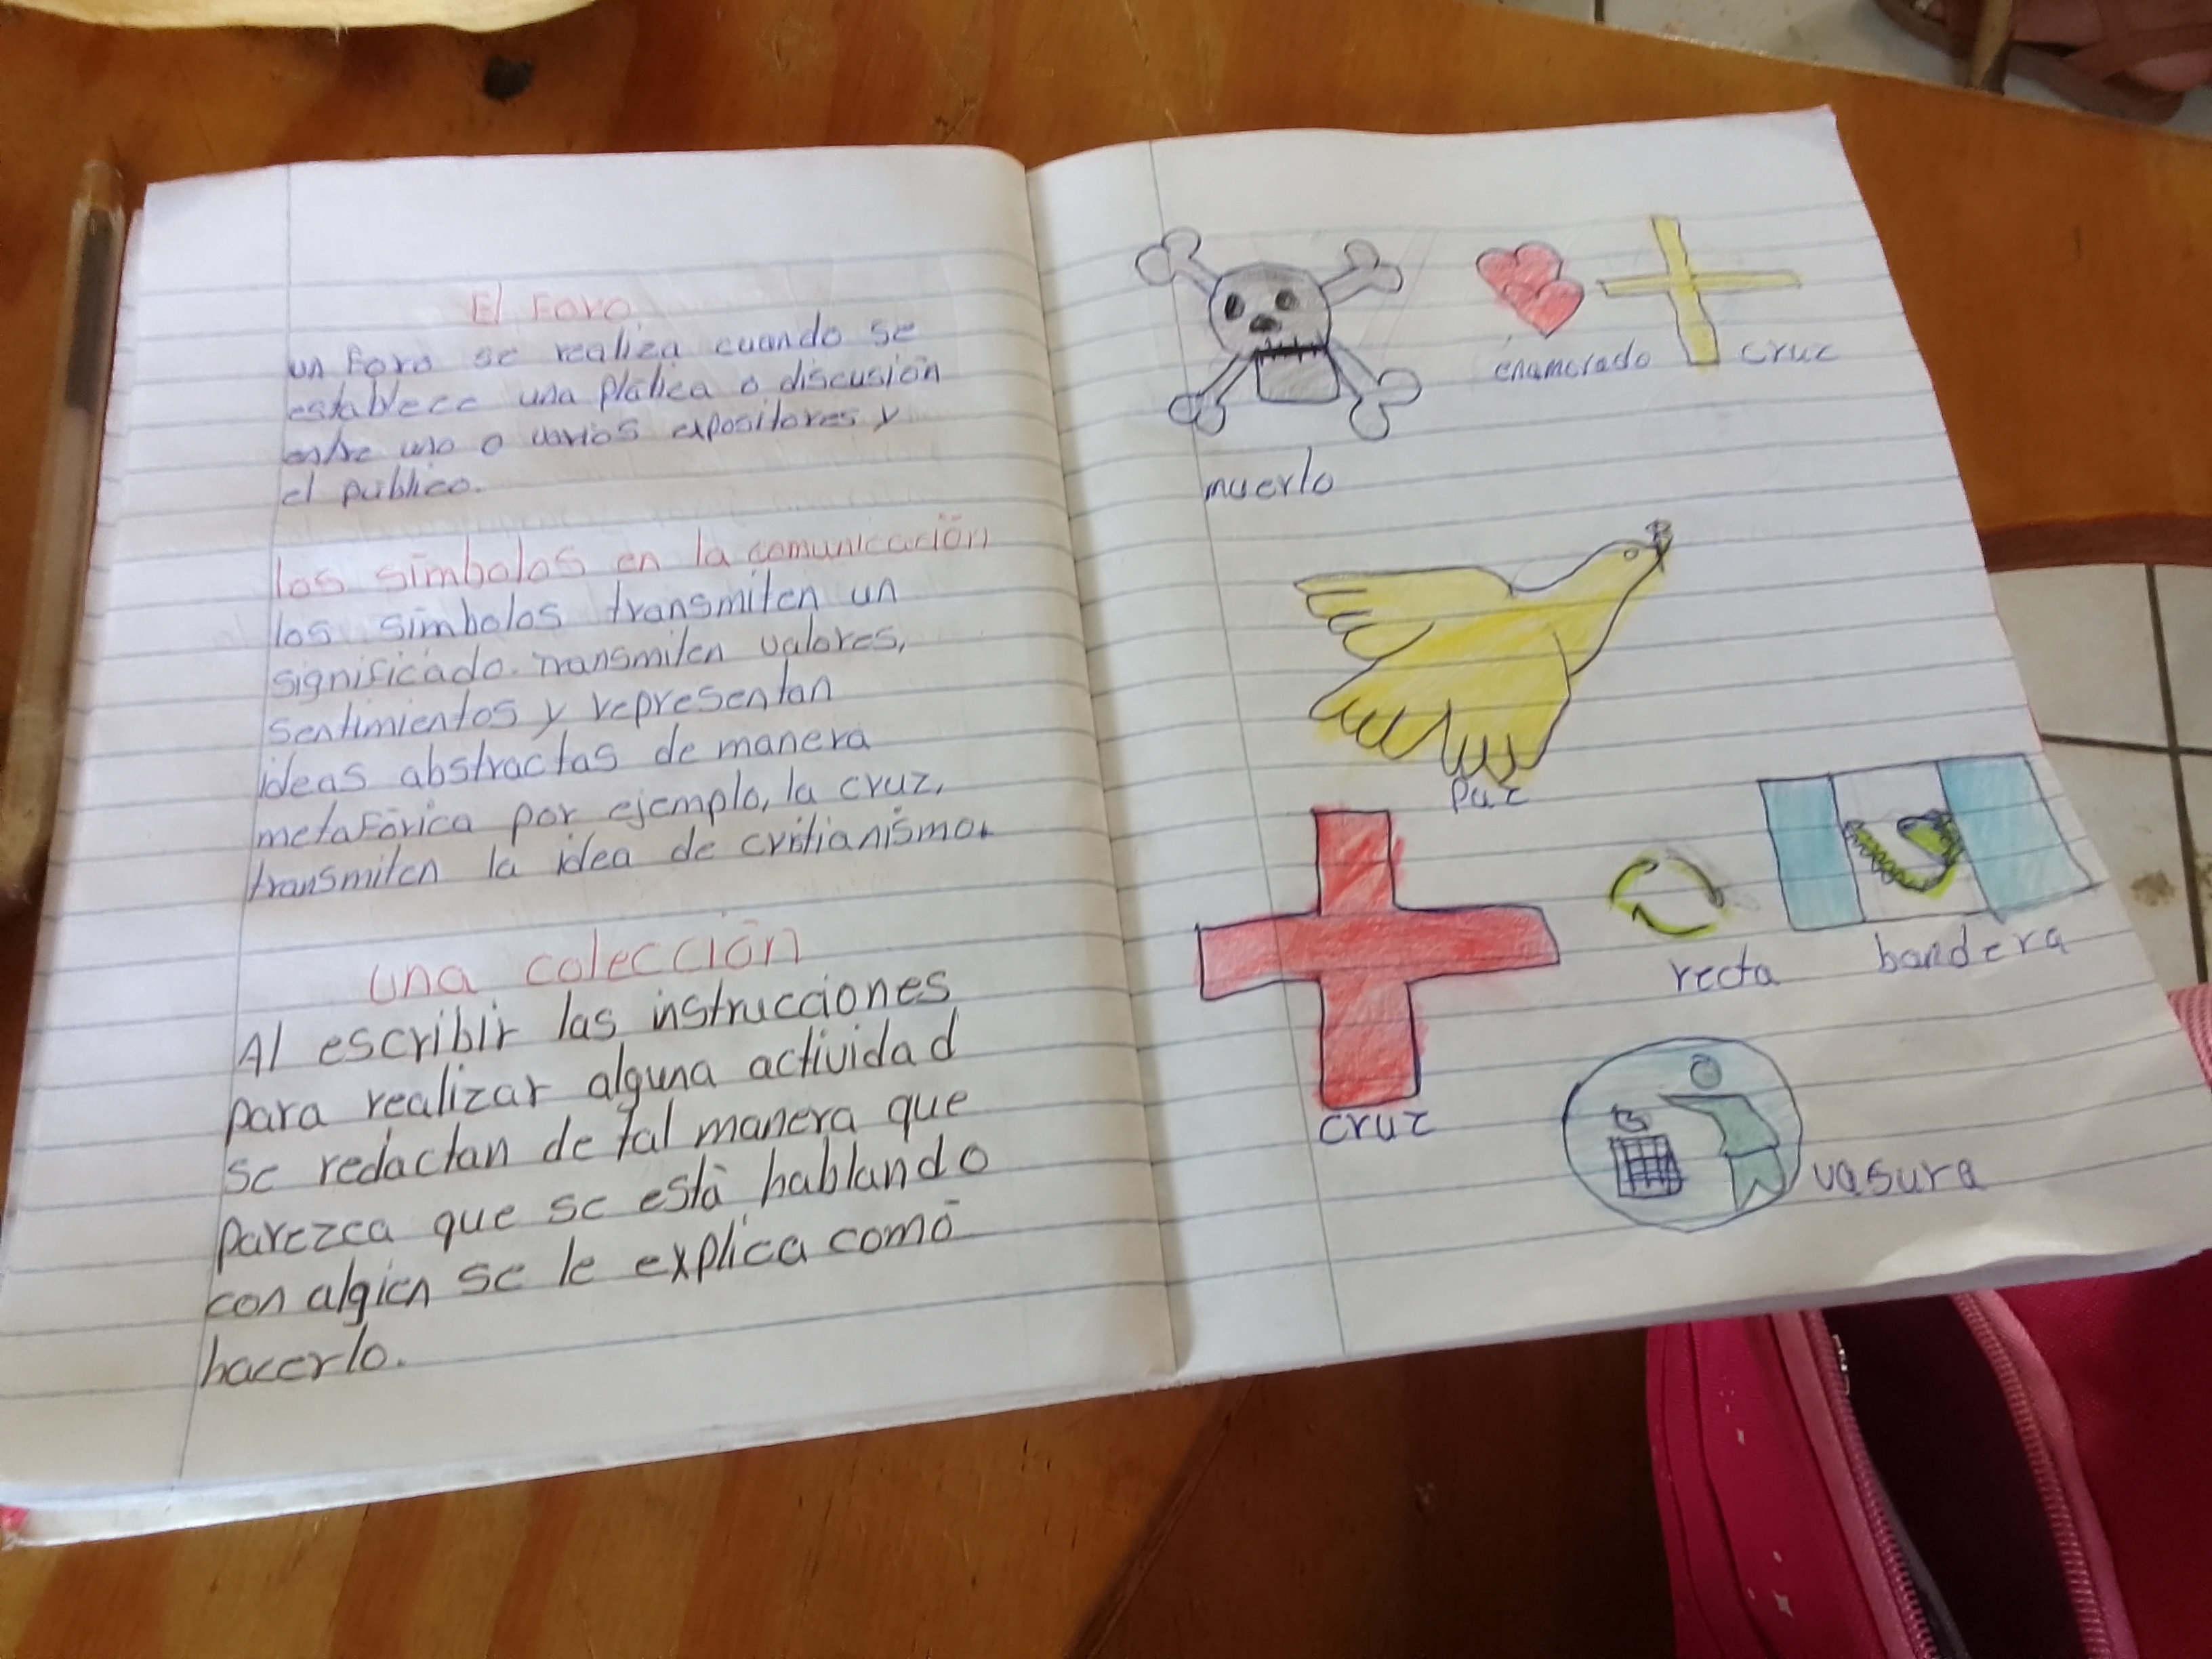 El Foro
un Foro se realiza cuando se
establece una plática o discusión
entre uno o varios expositores y
el público.
los símbolos en la comunicación
los símbolos transmiten un
significado. Transmiten valores,
sentimientos y representan
ideas abstractas de manera
metaFórica por ejemplo, la cruz,
transmiten la idea de cristianismo.
una colección
Al escribir las instrucciones
para realizar alguna actividad
se redactan de tal manera que
parezca que se está hablando
con algien se le explica comó
hacerlo.
muerto
enamorado
cruz
Paz
cruz
recta
bandera
vasura